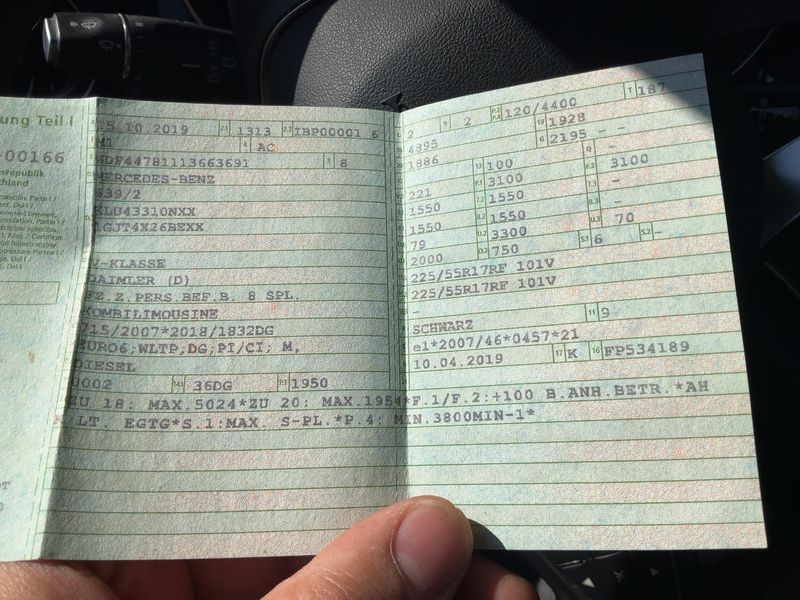 ung Teil I
-00166
esrepublik
chland
5.10.2019 2.1 1313 2.2 IBP00001 6
M1 4 AC
WDF44781113663691 3 8
MERCEDES-BENZ
639/2
KLU43310NXX
1GJT4X26BEXX
V-KLASSE
DAIMLER (D)
FZ.Z.PERS.BEF.B. 8 SPL.
KOMBILIMOUSINE
715/2007*2018/1832DG
EURO6;WLTP;DG;PI/CI; M,
DIESEL
0002 14.1 36DG P.1 1950
2 9 2 P.2 P.4 120/4400 T 187
4895 19 1928
1886 G 2195 - -
221 13 100 Q -
1550 F.1 3100 F.2 3100
1550 7.2 1550 7.3 -
79 8.2 1550 8.3 -
2000 U.2 3300 U.3 70
O.2 750 S.1 6 S.2 -
225/55R17RF 101V
225/55R17RF 101V
-
SCHWARZ 11 9
e1*2007/46*0457*21
10.04.2019 17 K 16 FP534189
ZU 18: MAX.5024*ZU 20: MAX.1954*F.1/F.2:+100 B.ANH.BETR.*AH
K LT. EGTG*S.1:MAX. S-PL.*P.4: MIN.3800MIN-1*